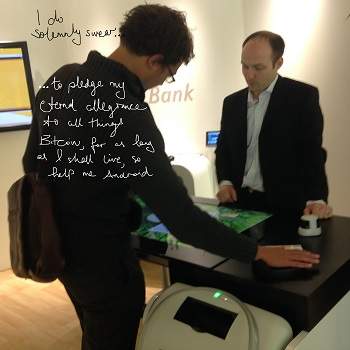 I do
solemnly swear...
...to pledge my
eternal allegiance
to all things
Bitcoin, for as long
as I shall live, so
help me Android
Bank